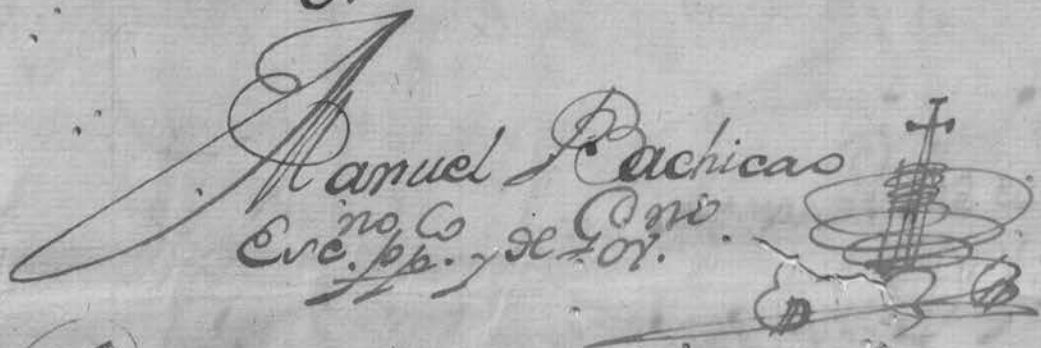 Manuel Bachicao
Esc.no pp.co y de Gov.no